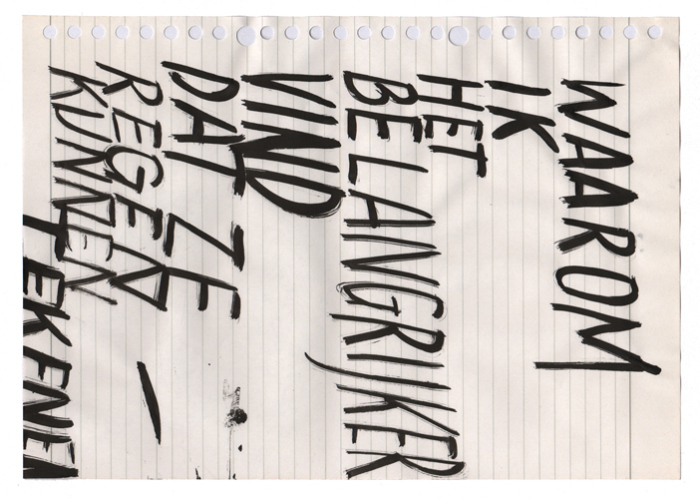 WAAROM
IK
HET
BELANGRIJKER
VIND
DAT ZE
REGEN
KUNNEN
TEKENEN